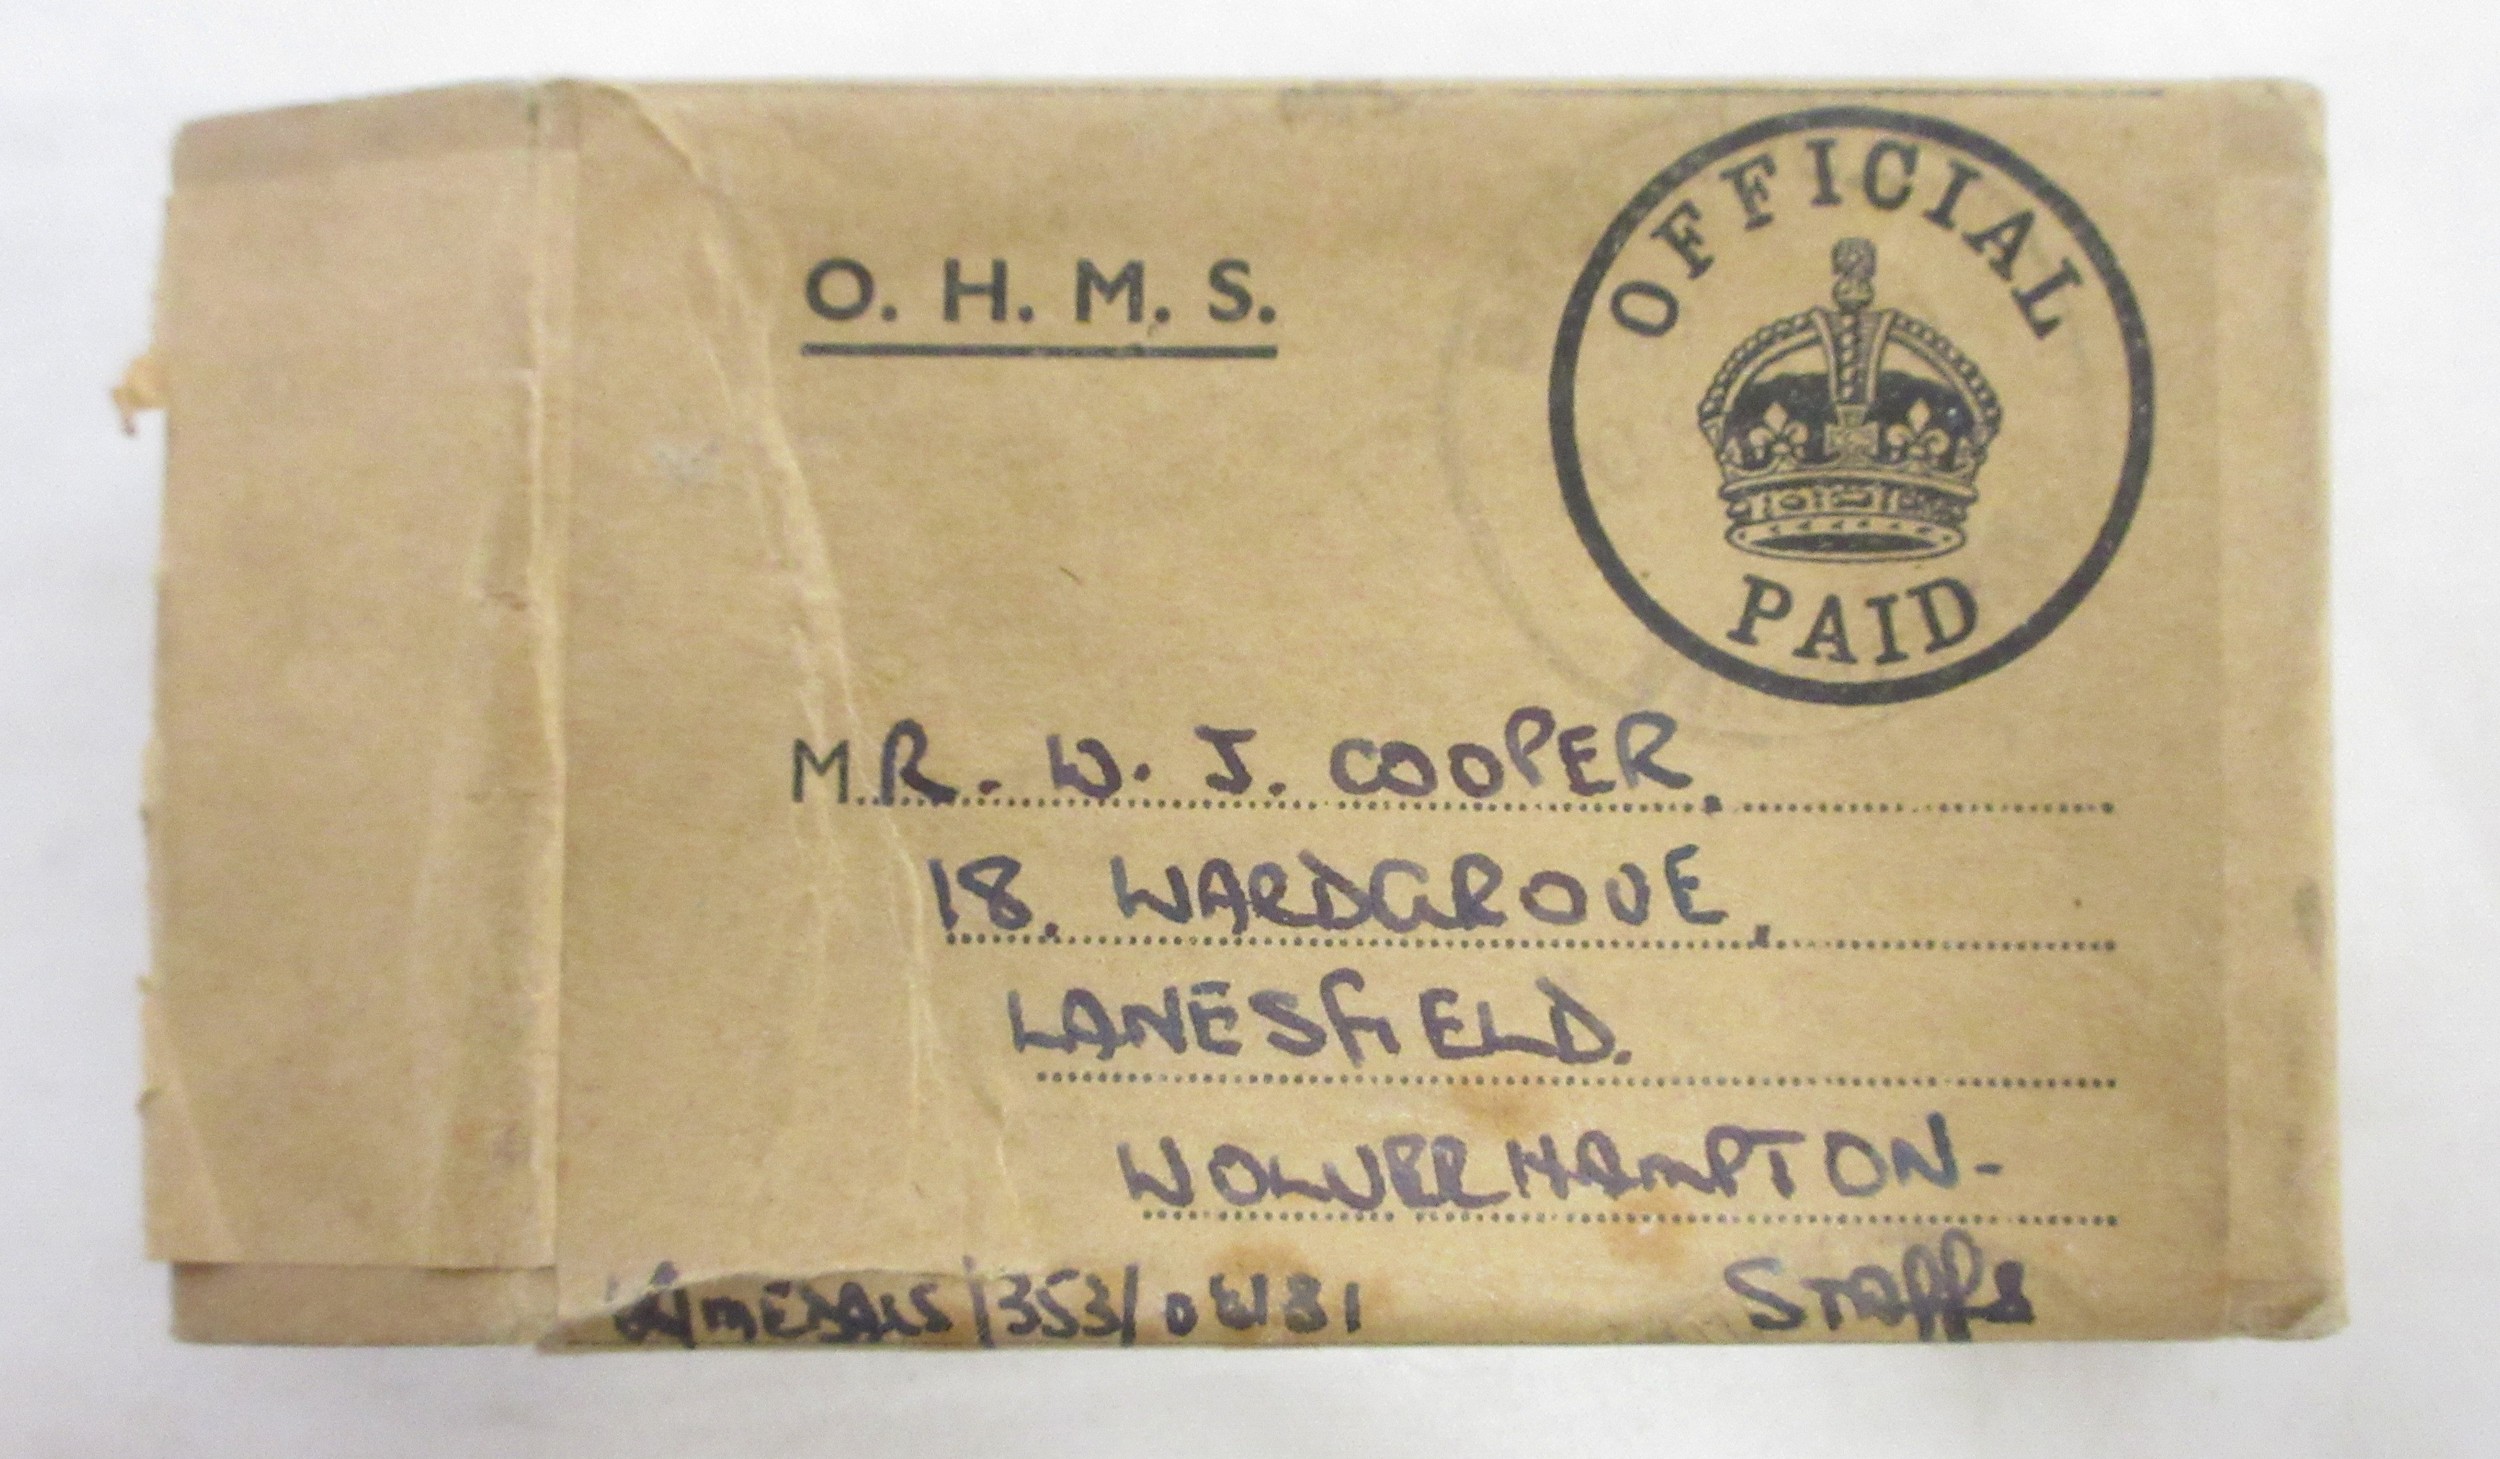 O. H. M. S.
OFFICIAL
PAID
MR. W. J. COOPER,
18. WARDGROVE,
LANESFIELD.
WOLVERHAMPTON-
STAFFS
MEDALS/353/